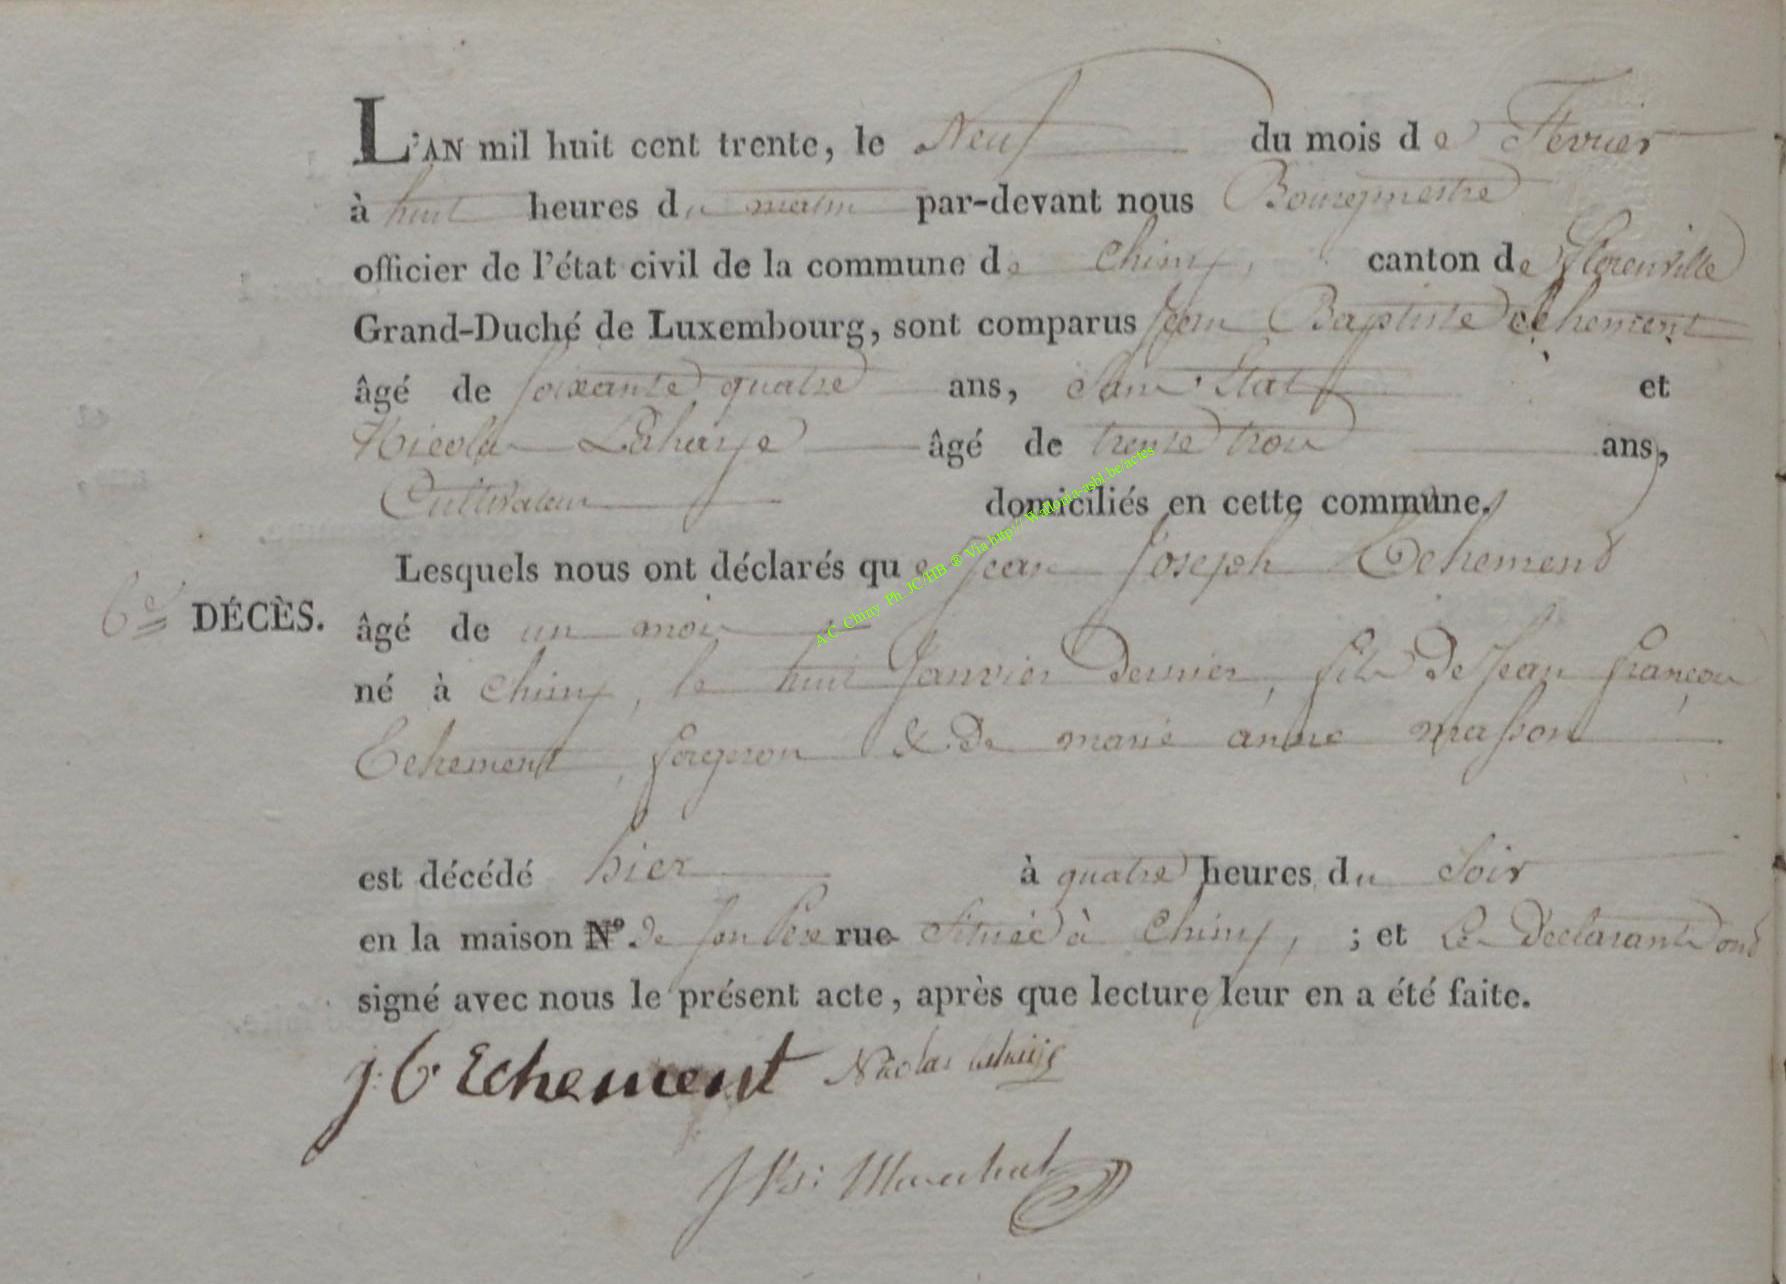 L'AN mil huit cent trente, le Neuf du mois de Fevrier
à huit heures du matin par-devant nous Bourgmestre
officier de l'état civil de la commune de Chiny, canton de Florenville
Grand-Duché de Luxembourg, sont comparus Jean Baptiste Echement
âgé de soixante quatre ans, Sans Etat et
Nicolas Laharge âgé de trente trois ans,
Cultivateur domiciliés en cette commune.
Lesquels nous ont déclarés que Jean Joseph Echement
6e DÉCÈS. âgé de un mois
né à Chiny, le huit Janvier dernier, fils de Jean françois
Echement, forgeron & de marie anne masson
est décédé hier à quatre heures du Soir
en la maison N°. de son Père rue Située à Chiny, ; et Les Déclarants ont
signé avec nous le présent acte, après que lecture leur en a été faite.
j. b. Echement Nicolas
Marechal
A.C. Chiny Ph. JC/HB ® Via http://Wallonia-asbl.be/actes